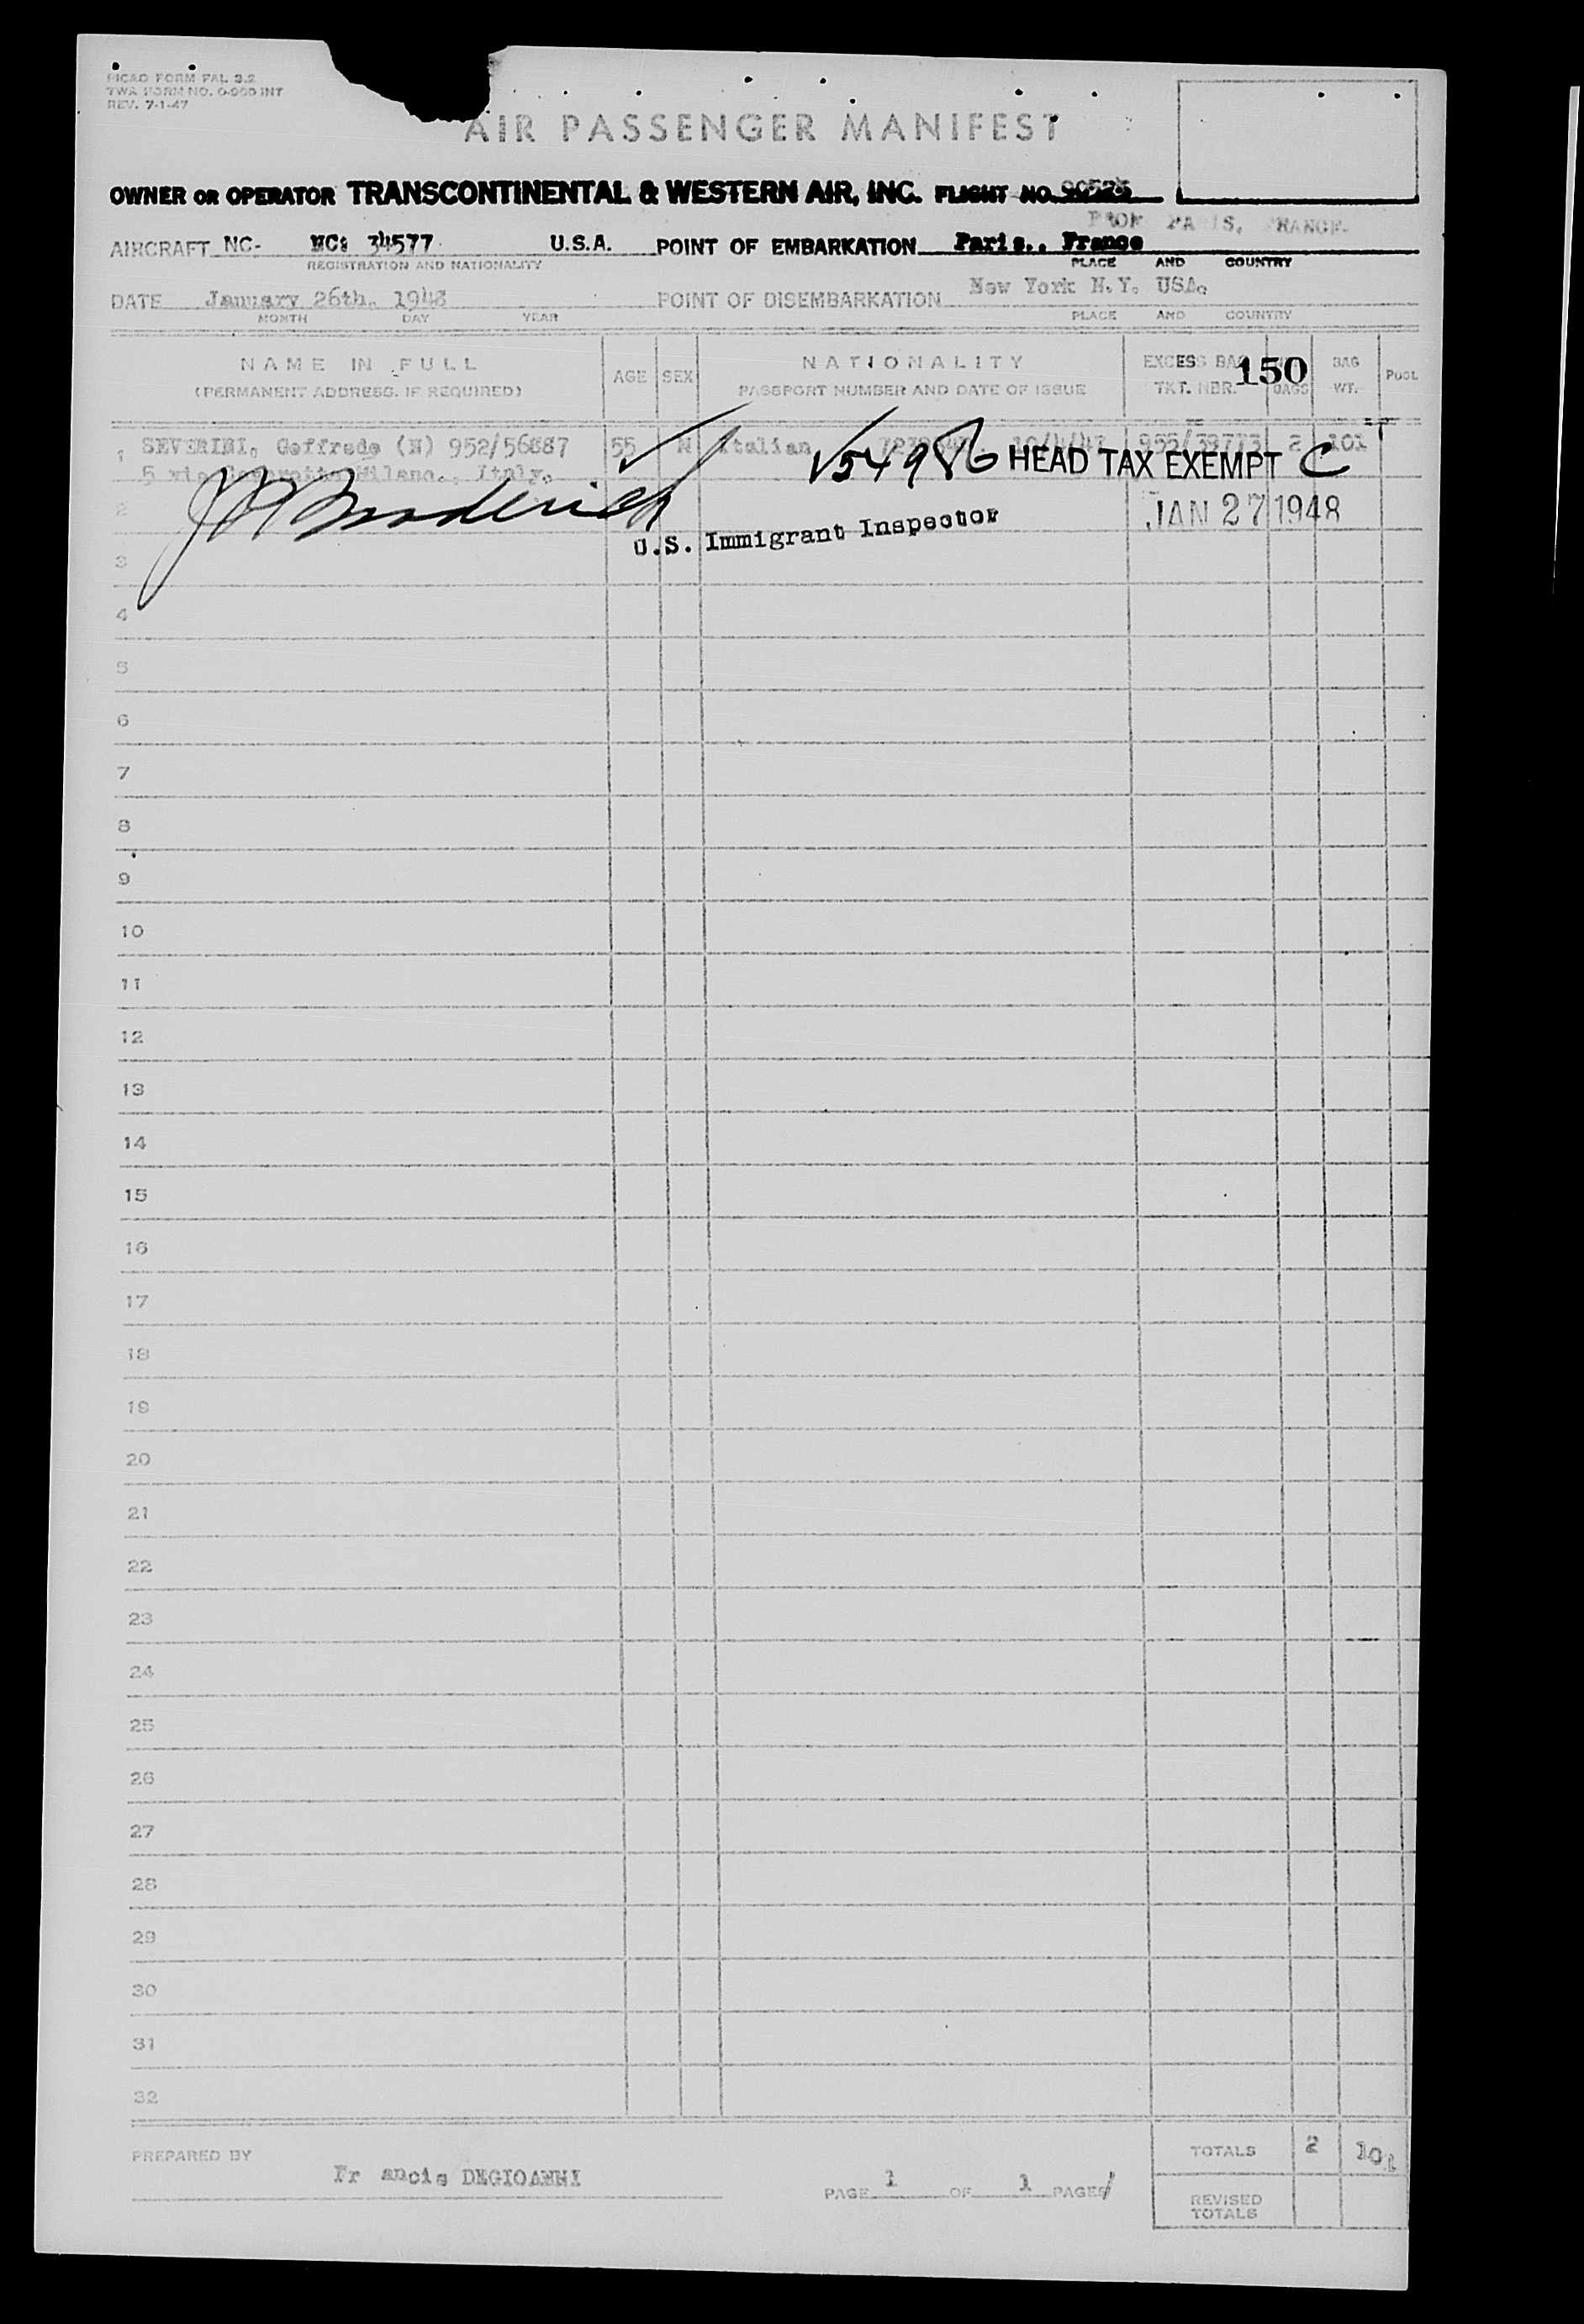 PICAO FORM FAL 3.2
TWA FORM NO. O-900 INT
REV. 7-1-47
AIR PASSENGER MANIFEST
OWNER OR OPERATOR TRANSCONTINENTAL & WESTERN AIR, INC. FLIGHT NO.
FROM PARIS, FRANCE.
AIRCRAFT NC- NC: 34577 U.S.A. POINT OF EMBARKATION Paris., France
REGISTRATION AND NATIONALITY PLACE AND COUNTRY
DATE January 26th. 1948 POINT OF DISEMBARKATION New York N.Y. USA.
MONTH DAY YEAR PLACE AND COUNTRY
NAME IN FULL AGE SEX NATIONALITY EXCESS BAG 150 BAG POOL
(PERMANENT ADDRESS, IF REQUIRED) PASSPORT NUMBER AND DATE OF ISSUE TKT. NBR. BAGS WT.
1 SEVERINI, Goffredo (M) 952/56887 55 M Italian 955/39713 2 101
5 via Milano., Italy.
V54986 HEAD TAX EXEMPT C
2 JAN 27 1948
U.S. Immigrant Inspector
3
4
5
6
7
8
9
10
11
12
13
14
15
16
17
18
19
20
21
22
23
24
25
26
27
28
29
30
31
32
PREPARED BY Fr ancis DEGIOANNI
PAGE 1 OF 1 PAGES
TOTALS 2 101
REVISED TOTALS